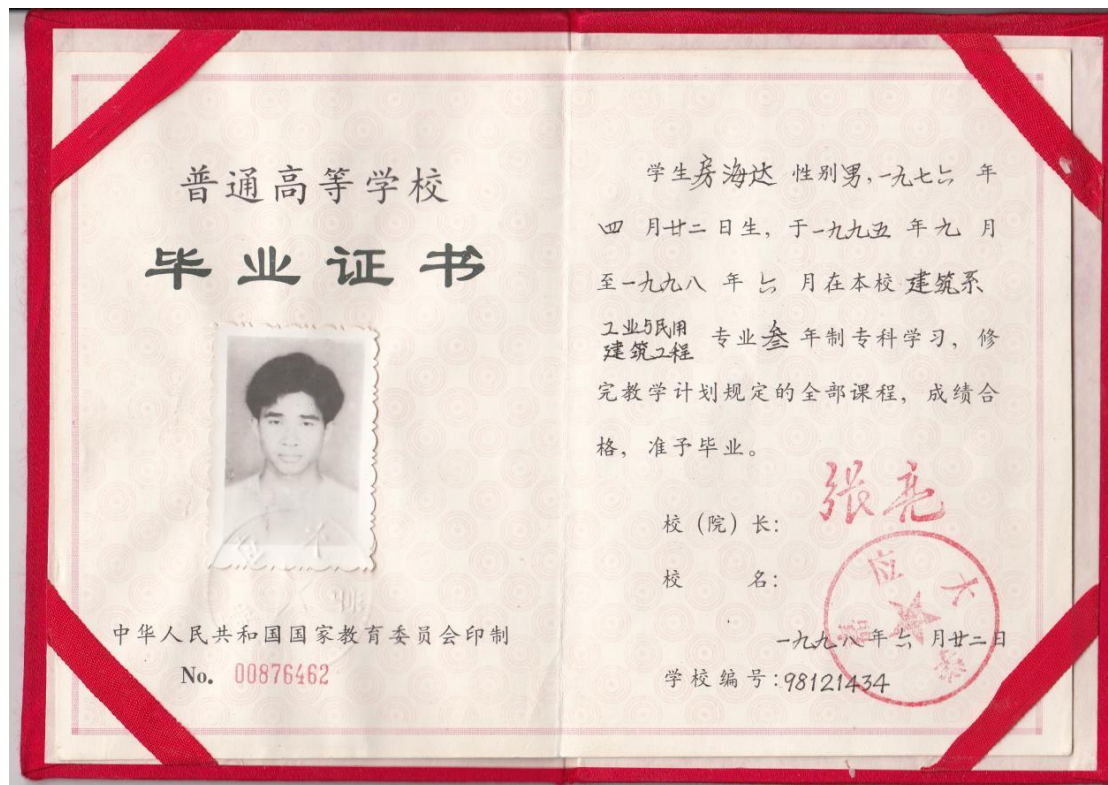 普通高等学校
毕业证书
中华人民共和国国家教育委员会印制
No. 00876462
学生房海达 性别男,一九七六 年
四 月廿二日生, 于一九九五 年九 月
至一九九八 年 六 月在本校 建筑系
工业与民用
建筑工程 专业叁 年制专科学习, 修
完教学计划规定的全部课程, 成绩合
格, 准予毕业。
校(院)长: 张亮
校 名:
一九九八年六月廿二日
学校编号:98121434